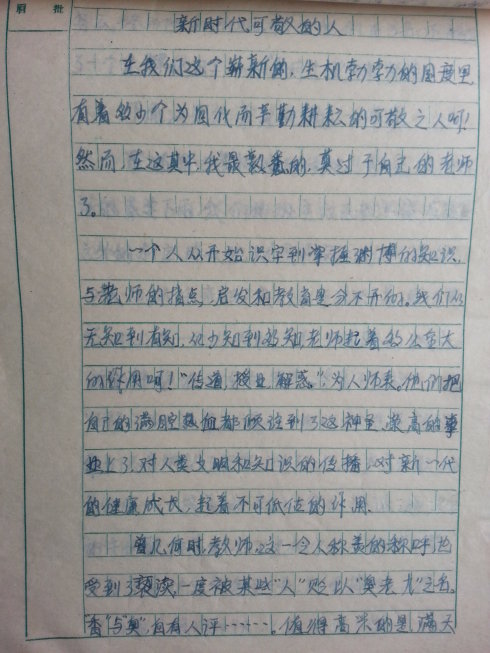 眉 批
新时代可敬的人
在我们这个崭新的,生机勃勃的国度里
有着多少个为四代而辛勤耕耘的可敬之人呵!
然而,在这其中,我最敬爱的,莫过于自己的老师
了。
一个人从开始识字到掌握渊博的知识,
与老师的指点,启发和教育是分不开的。我们从
无知到有知,从少知到多知,老师起着多么重大
的作用呵!“传道,授业,解惑。”为人师表。他们把
自己的满腔热血都倾注到了这神圣,崇高的事
业上了,对人类文明和知识的传播,对新一代
的健康成长,起着不可低估的作用。
曾几何时,教师,这一令人称羡的称呼,也
受到了亵渎,一度被某些“人”贬以“臭老九”之名。
“香”与“臭”,自有人评……。值得高兴的是,满天